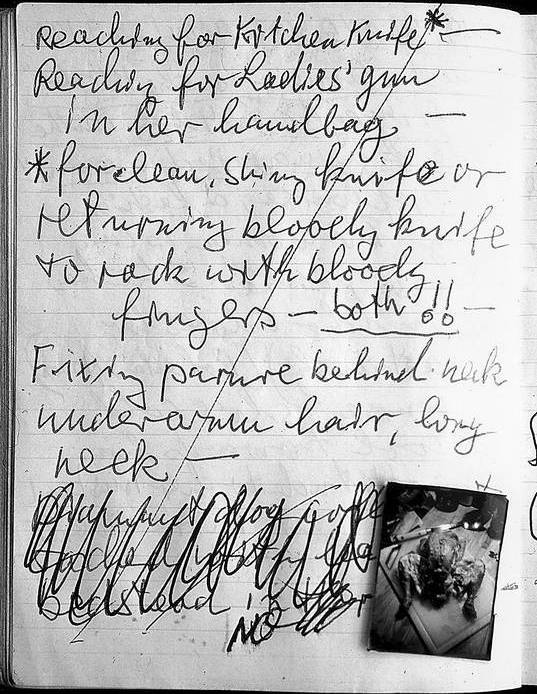 Reaching for Kitchen Knife* —
Reaching for Ladies' gun
in her handbag —
*for clean, shiny knife or
returning bloody knife
to rack with bloody
fingers — both!! —
Fixing parure behind neck
underarm hair, long
neck —
dog
bedstead
NO